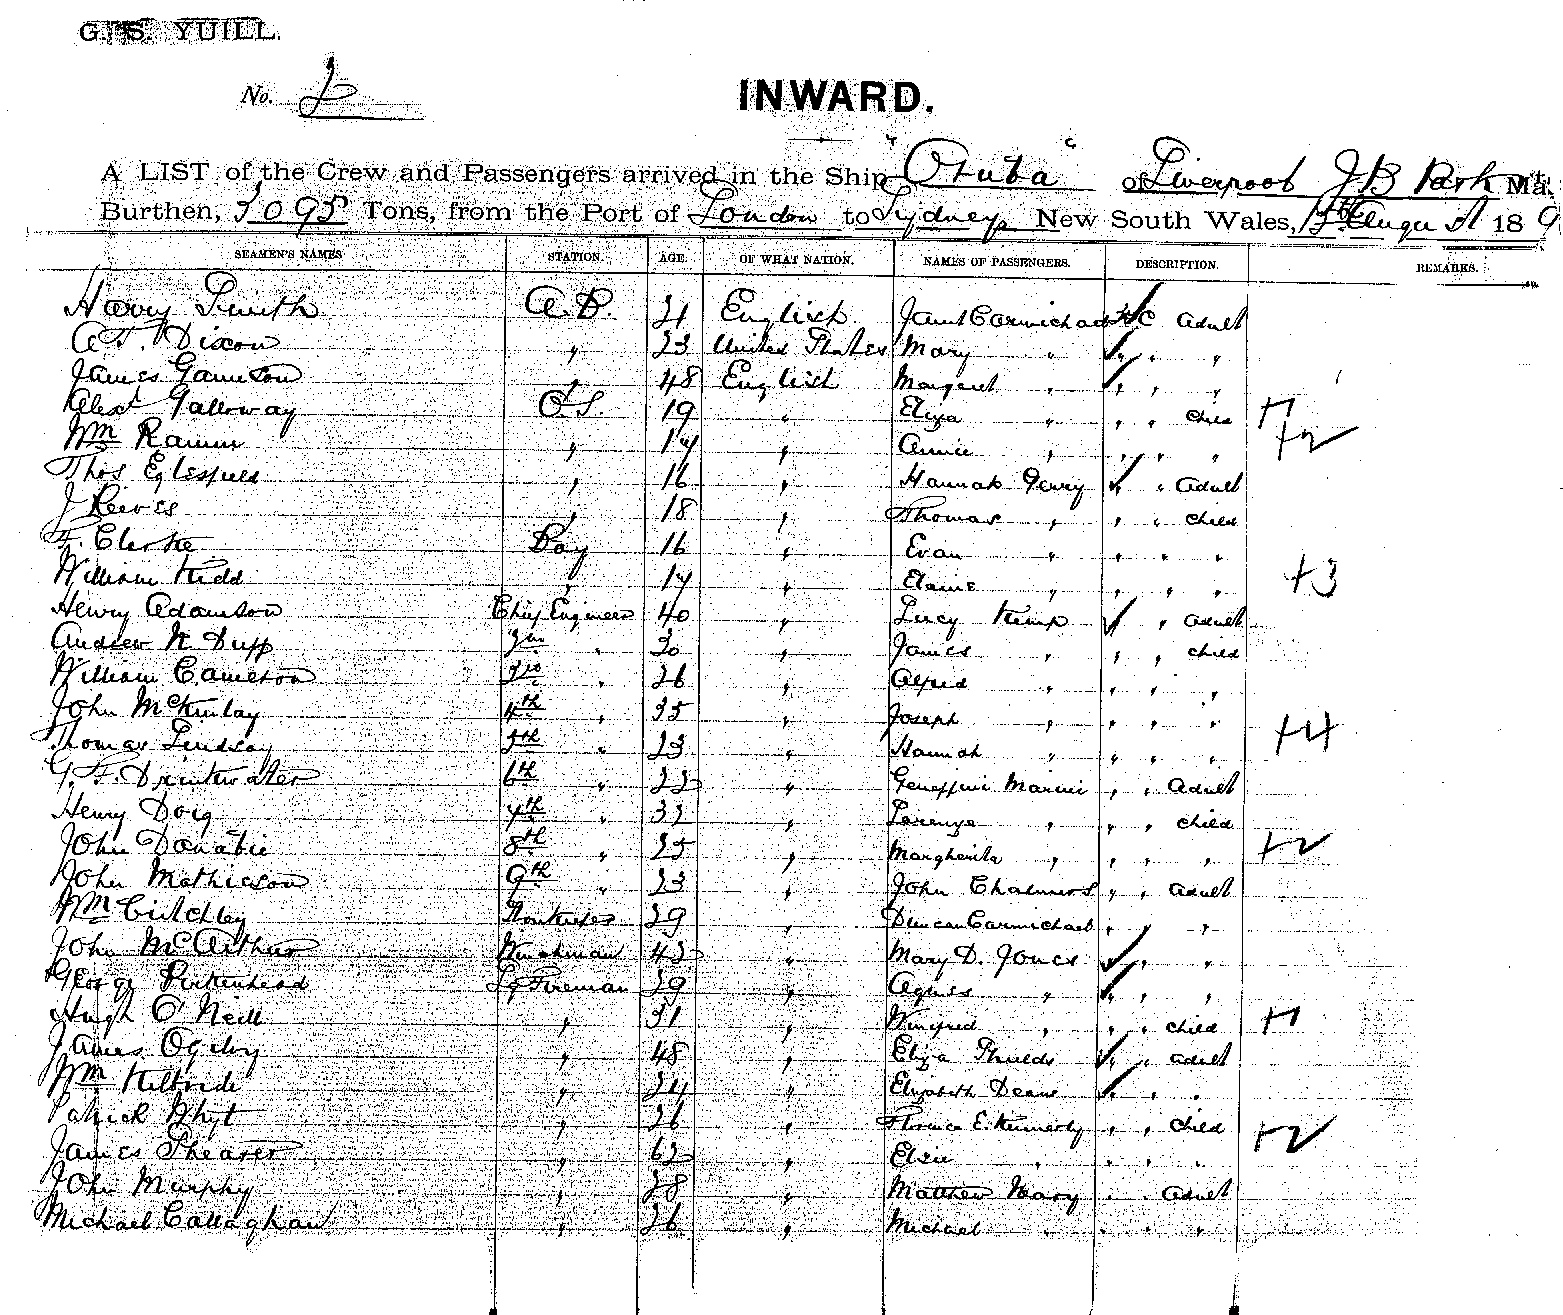 G. S. YUILL.
No. 2
INWARD.
A LIST of the Crew and Passengers arrived in the Ship "Oruba" of Liverpool J B Park Ma
Burthen, 3095 Tons, from the Port of London to Sydney New South Wales, August 18 9
SEAMEN'S NAMES STATION. AGE. OF WHAT NATION. NAMES OF PASSENGERS. DESCRIPTION. REMARKS.
Harry Smith A.B. 21 English Carmichael Adult
A.T. Dixon " 23 United States Mary " " " "
James Gameson " 48 English Margaret " " " "
Alext Galloway O.S. 19 " Eliza " " " child +1
Wm Ramm " 17 " Annie " " " " +2
Thos Eglesfield " 16 " Hannah Gerry " " Adult
J Reeves " 18 " Thomas " " " child
F. Clarke Boy 16 " Evan " " " "
William Kidd " 17 " " " " " +3
Henry Adamson Chief Engineer 40 " Lucy Kemp " " Adult
Andrew K Dupp 2nd " 30 " James " " " child
William Cameron 3rd " 26 " Alfred " " " "
John McKinlay 4th " 35 " Joseph " " " "
Thomas Lindsay 5th " 23 " Hannah " " " " +4
G. F. Drinkwater 6th " 22 " Marini " " Adult
Henry Doig 7th " 32 " Lorenzo " " " child
John Donabie 8th " 25 " Margherita " " " " +2
John Mathieson 9th " 23 " John Chalmers " " Adult
Wm Critchley Storekeeper 29 " Duncan Carmichael " " "
John McArthur Winchman 42 " Mary D. Jones " " "
George Birkenhead Lg Fireman 29 " Agnes " " " "
Hugh O'Neill " 31 " Winifred " " " child +1
James Ogilvy " 48 " Eliza Shields " " Adult
Wm Kilbride " 24 " Elizabeth Deans " " "
Patrick " 26 " Florence E. Kennerly " " child +2
James Shearer " 62 " Elsie " " " "
John Murphy " 28 " Matthew " " Adult
Michael Callaghan " 26 " Michael " " " "